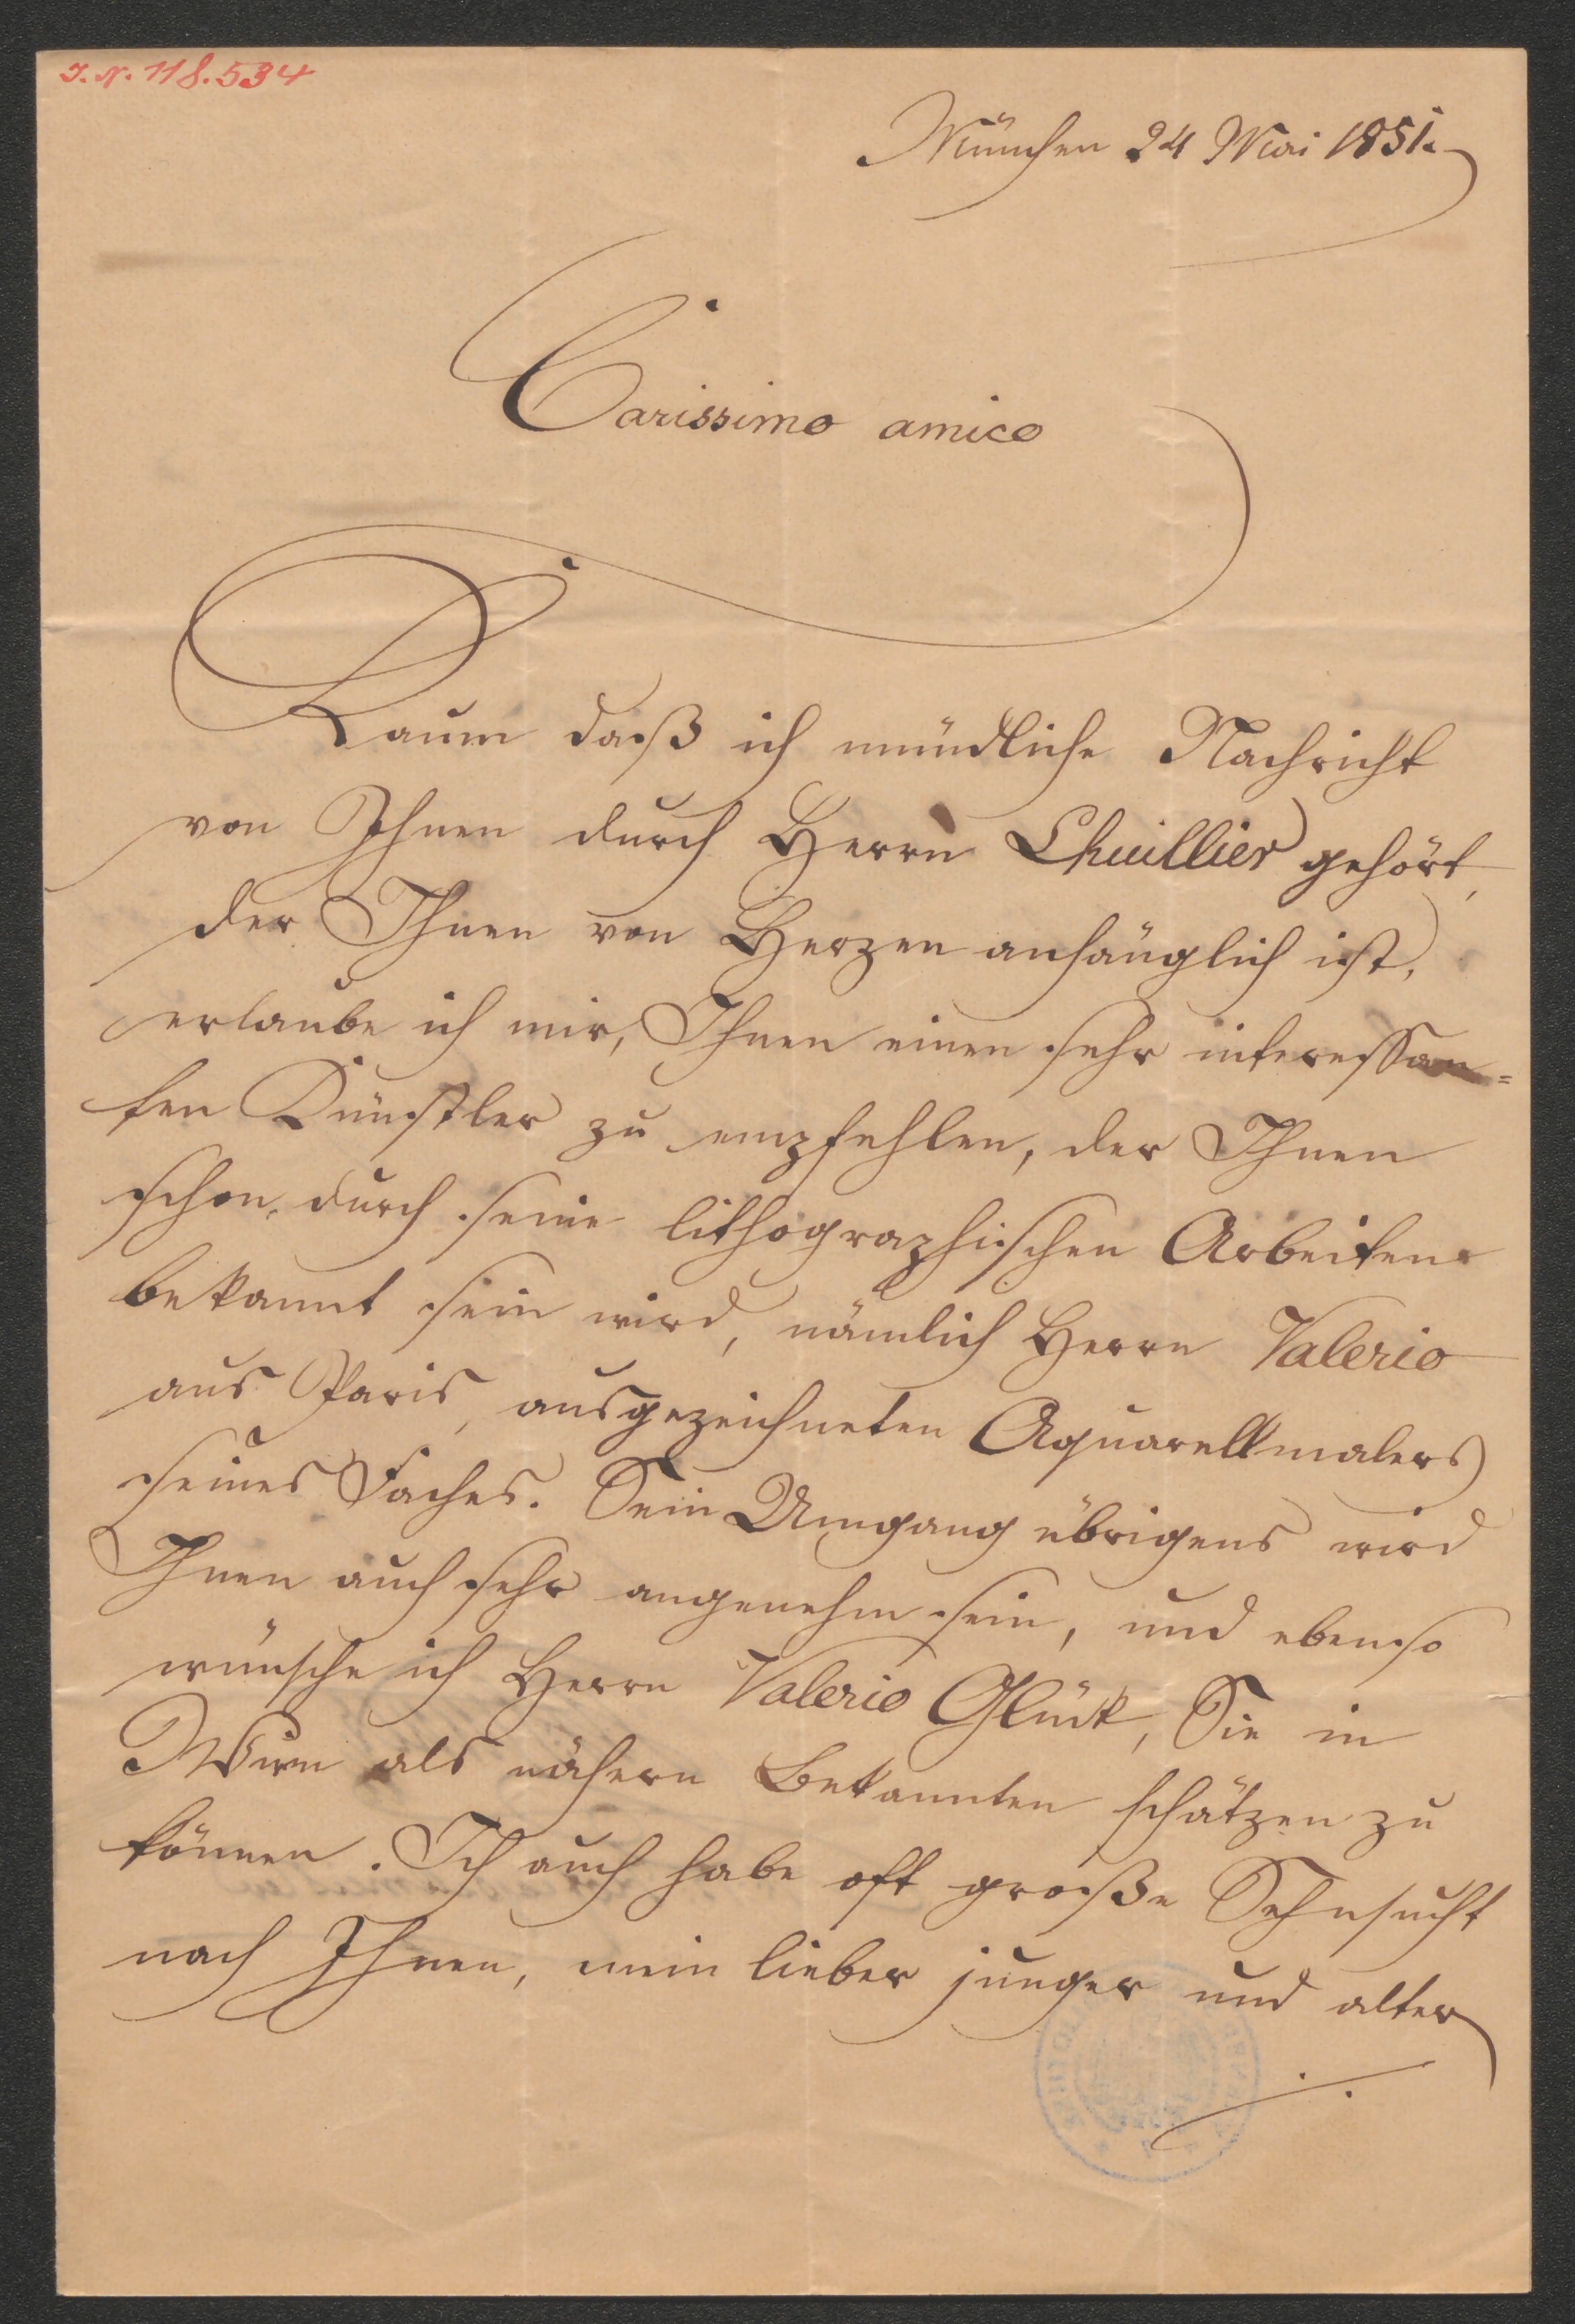 J. N. 118.534
München 24 Mai 1851.
Carissimo amico
Kaum daß ich mündliche Nachricht
von Ihnen durch Herrn Lhuillier gehört,
der Ihnen von Herzen anhänglich ist,
erlaube ich mir, Ihnen einen sehr interessan=
ten Künstler zu empfehlen, der Ihnen
schon durch seine lithographischen Arbeiten
bekannt sein wird, nämlich Herrn Valerio
aus Paris, ausgezeichneten Aquarellmalers
seines Faches. Sein Umgang übrigens wird
Ihnen auch sehr angenehm sein, und ebenso
wünsche ich Herrn Valerio Glück, Sie in
Wien als nähern Bekannten schätzen zu
können. Ich auch habe oft große Sehnsucht
nach Ihnen, mein lieber junger und alter